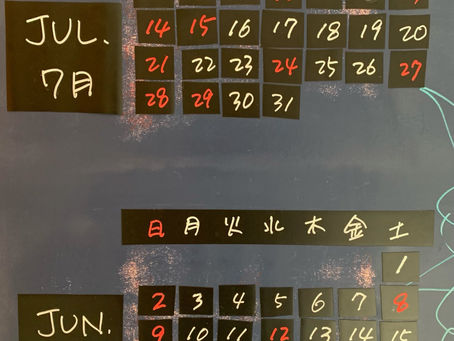 JUL.
7月
14 15 16 17 18 19 20
21 22 23 24 25 26 27
28 29 30 31
日 月 火 水 木 金 土
1
JUN.
2 3 4 5 6 7 8
9 10 11 12 13 14 15